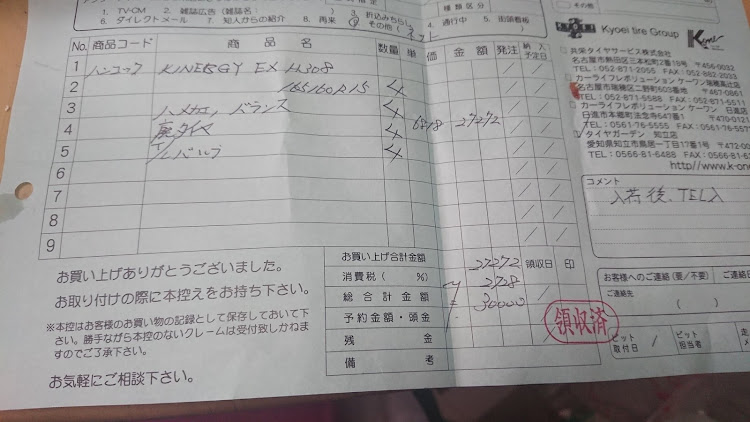 1. TV-CM 2. 雑誌広告（雑誌名： ） 3. 折込みちらし
6. ダイレクトメール 7. 知人からの紹介 8. 再来 9. その他（ネット
種類区分
4. 通行中 5. 街頭看板）
その他（
Kyoei tire Group
No. 商品コード 商品名 数量 単価 金額 発注 納入予定日
1 ハンコック KINERGY EX H308
2 165/60R15 4
3 ハメカエ, バランス 4
4 廃タイヤ 4 6818 27272
5 バルブ 4
6
7
8
9
共栄タイヤサービス株式会社
名古屋市熱田区三本松町2番19号 〒456-0032
TEL：052-871-2055 FAX：052-882-2033
カーライフレボリューション ケーワン 瑞穂高辻店
名古屋市瑞穂区二野町603番地 〒467-0861
TEL：052-871-5588 FAX：052-871-5511
カーライフレボリューション ケーワン 日進店
日進市本郷町法念寺647番1 〒470-0121
TEL：0561-76-5555 FAX：0561-76-
タイヤガーデン 知立店
愛知県知立市鳥居一丁目17番1号 〒472-00
TEL：0566-81-6488 FAX：0566-81-6
http//www.k-one
コメント
入荷後、TEL入
お買い上げありがとうございました。
お取り付けの際に本控えをお持ち下さい。
※本控はお客様のお買い物の記録として保存しておいて下
さい。勝手ながら本控のないクレームは受付致しかねま
すのでご了承下さい。
お気軽にご相談下さい。
お買い上げ合計金額 27272 領収日 印
消費税（ %） 2728
総合計金額 30000
予約金額・頭金
残金
備考
領収済
お客様へのご連絡（要／不要） ご連絡日
ご連絡先
（ ）
ピット取付日 ／ ピット担当者